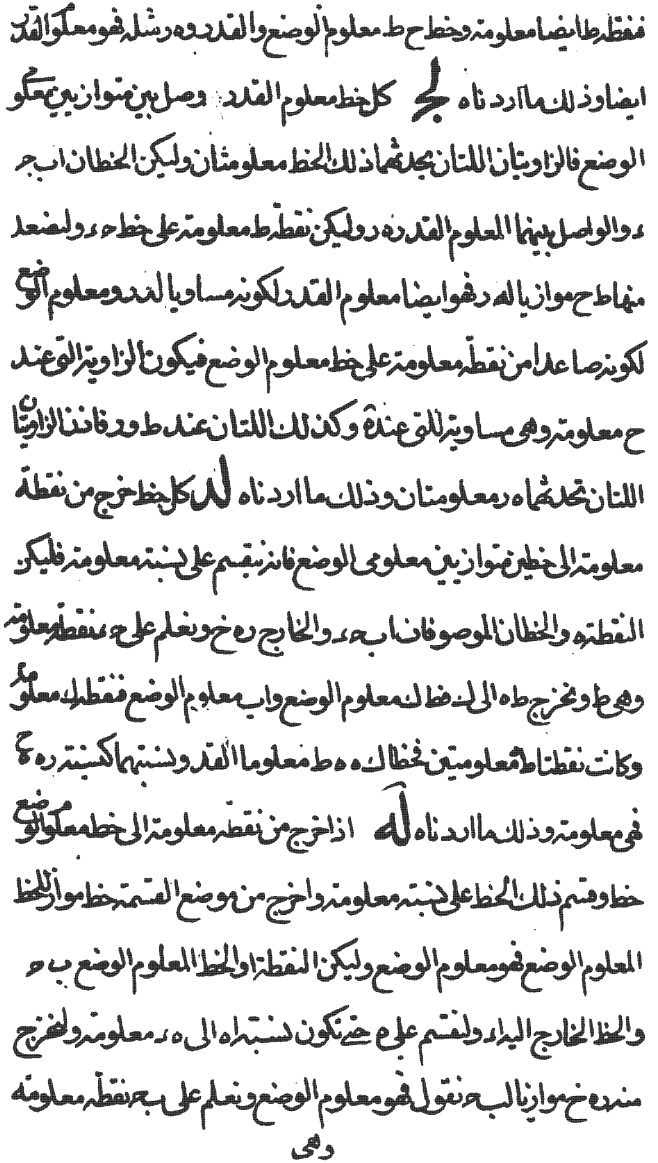 فنقطة ط ايضا معلومة وخط ح ط معلوم الوضع والقدر و ه ر مثله فهو معلوم القدر
ايضا وذلك ما اردناه لج كل خط معلوم القدر وصل بين متوازيين معلومى
الوضع فالزاويتان اللتان يحدثهما ذلك الخط معلومتان وليكن الخطان ا ب ح
ء والواصل بينهما المعلوم القدر ه ر وليكن نقطة ط معلومة على خط ح ء ولنصعد
منها ط ح موازيا له ر فهو ايضا معلوم القدر لكونه مساويا له ر ومعلوم الوضع
لكونه صاعدا من نقطة معلومة على خط معلوم الوضع فيكون الزاوية التى عند
ح معلومة وهى مساوية للتى عند ه وكذلك اللتان عند ط و ر فاذن الزاويتان
اللتان تحدثهما ه ر معلومتان وذلك ما اردناه لد كل خط خرج من نقطة
معلومة الى خطين متوازيين معلومى الوضع فانه ينقسم على نسبة معلومة فليكن
النقطة ه والخطان الموصوفان ا ب ح ء والخارج ر ه خ ونعلم على ح ء نقطة معلومة
وهى ط ونخرج ط ه الى ك فط ك معلوم الوضع وا ب معلوم الوضع فنقطة ك معلومة
وكانت نقطتا ط ه معلومتين فخطا ك ه ه ط معلوما القدر ونسبتهما كنسبة ر ه ه ح
فهى معلومة وذلك ما اردناه له اذا خرج من نقطة معلومة الى خط معلوم الوضع
خط وقسم ذلك الخط على نسبة معلومة واخرج من موضع القسمة خط مواز للخط
المعلوم الوضع فهو معلوم الوضع وليكن النقطة ا والخط المعلوم الوضع ب ح
والخط الخارج اليه ا ء ولنقسم على ه حتى تكون نسبة ا ه الى ه ء معلومة ولنخرج
منه ر ه خ موازيا لب ح نقول فهو معلوم الوضع ونعلم على ب ح نقطة معلومة
وهى